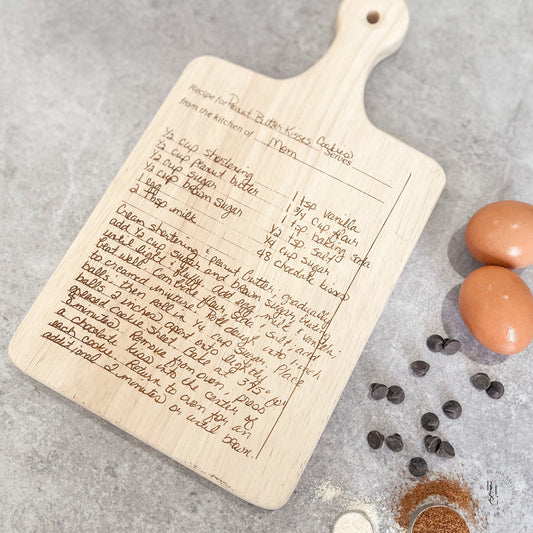 Recipe for Peanut Butter Kisses Cookies
from the kitchen of Mom serves
½ cup shortening
½ cup peanut butter
½ cup sugar
½ cup brown sugar
1 egg
2 tbsp milk
1 tsp vanilla
1 ¾ cup flour
1 tsp baking soda
½ tsp salt
¼ cup sugar
48 chocolate kisses
Cream shortening & peanut butter, gradually
add ½ cup sugar and brown sugar, beating
until light & fluffy. Add egg, milk & vanilla:
beat well. Combine flour, soda, salt, and
to creamed mixture. Roll dough into 1-inch
balls, then roll in ¼ cup sugar. Place
balls 2 inches apart on lightly
greased cookie sheet. Bake at 375° for
8 minutes. Remove from oven, press
a chocolate kiss into the center of
each cookie. Return to oven for an
additional 2 minutes or until brown.